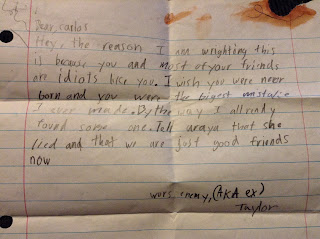 Dear, carlos
Hey, the reason I am wrighting this
is becouse you and most of your friends
are idiots like you. I wish you were never
born and you were the biggest mistake
I ever made. By the way I allready
found some one. tell araya that she
lied and that we are just good friends
now
wors enemy, (AKA ex)
Taylor